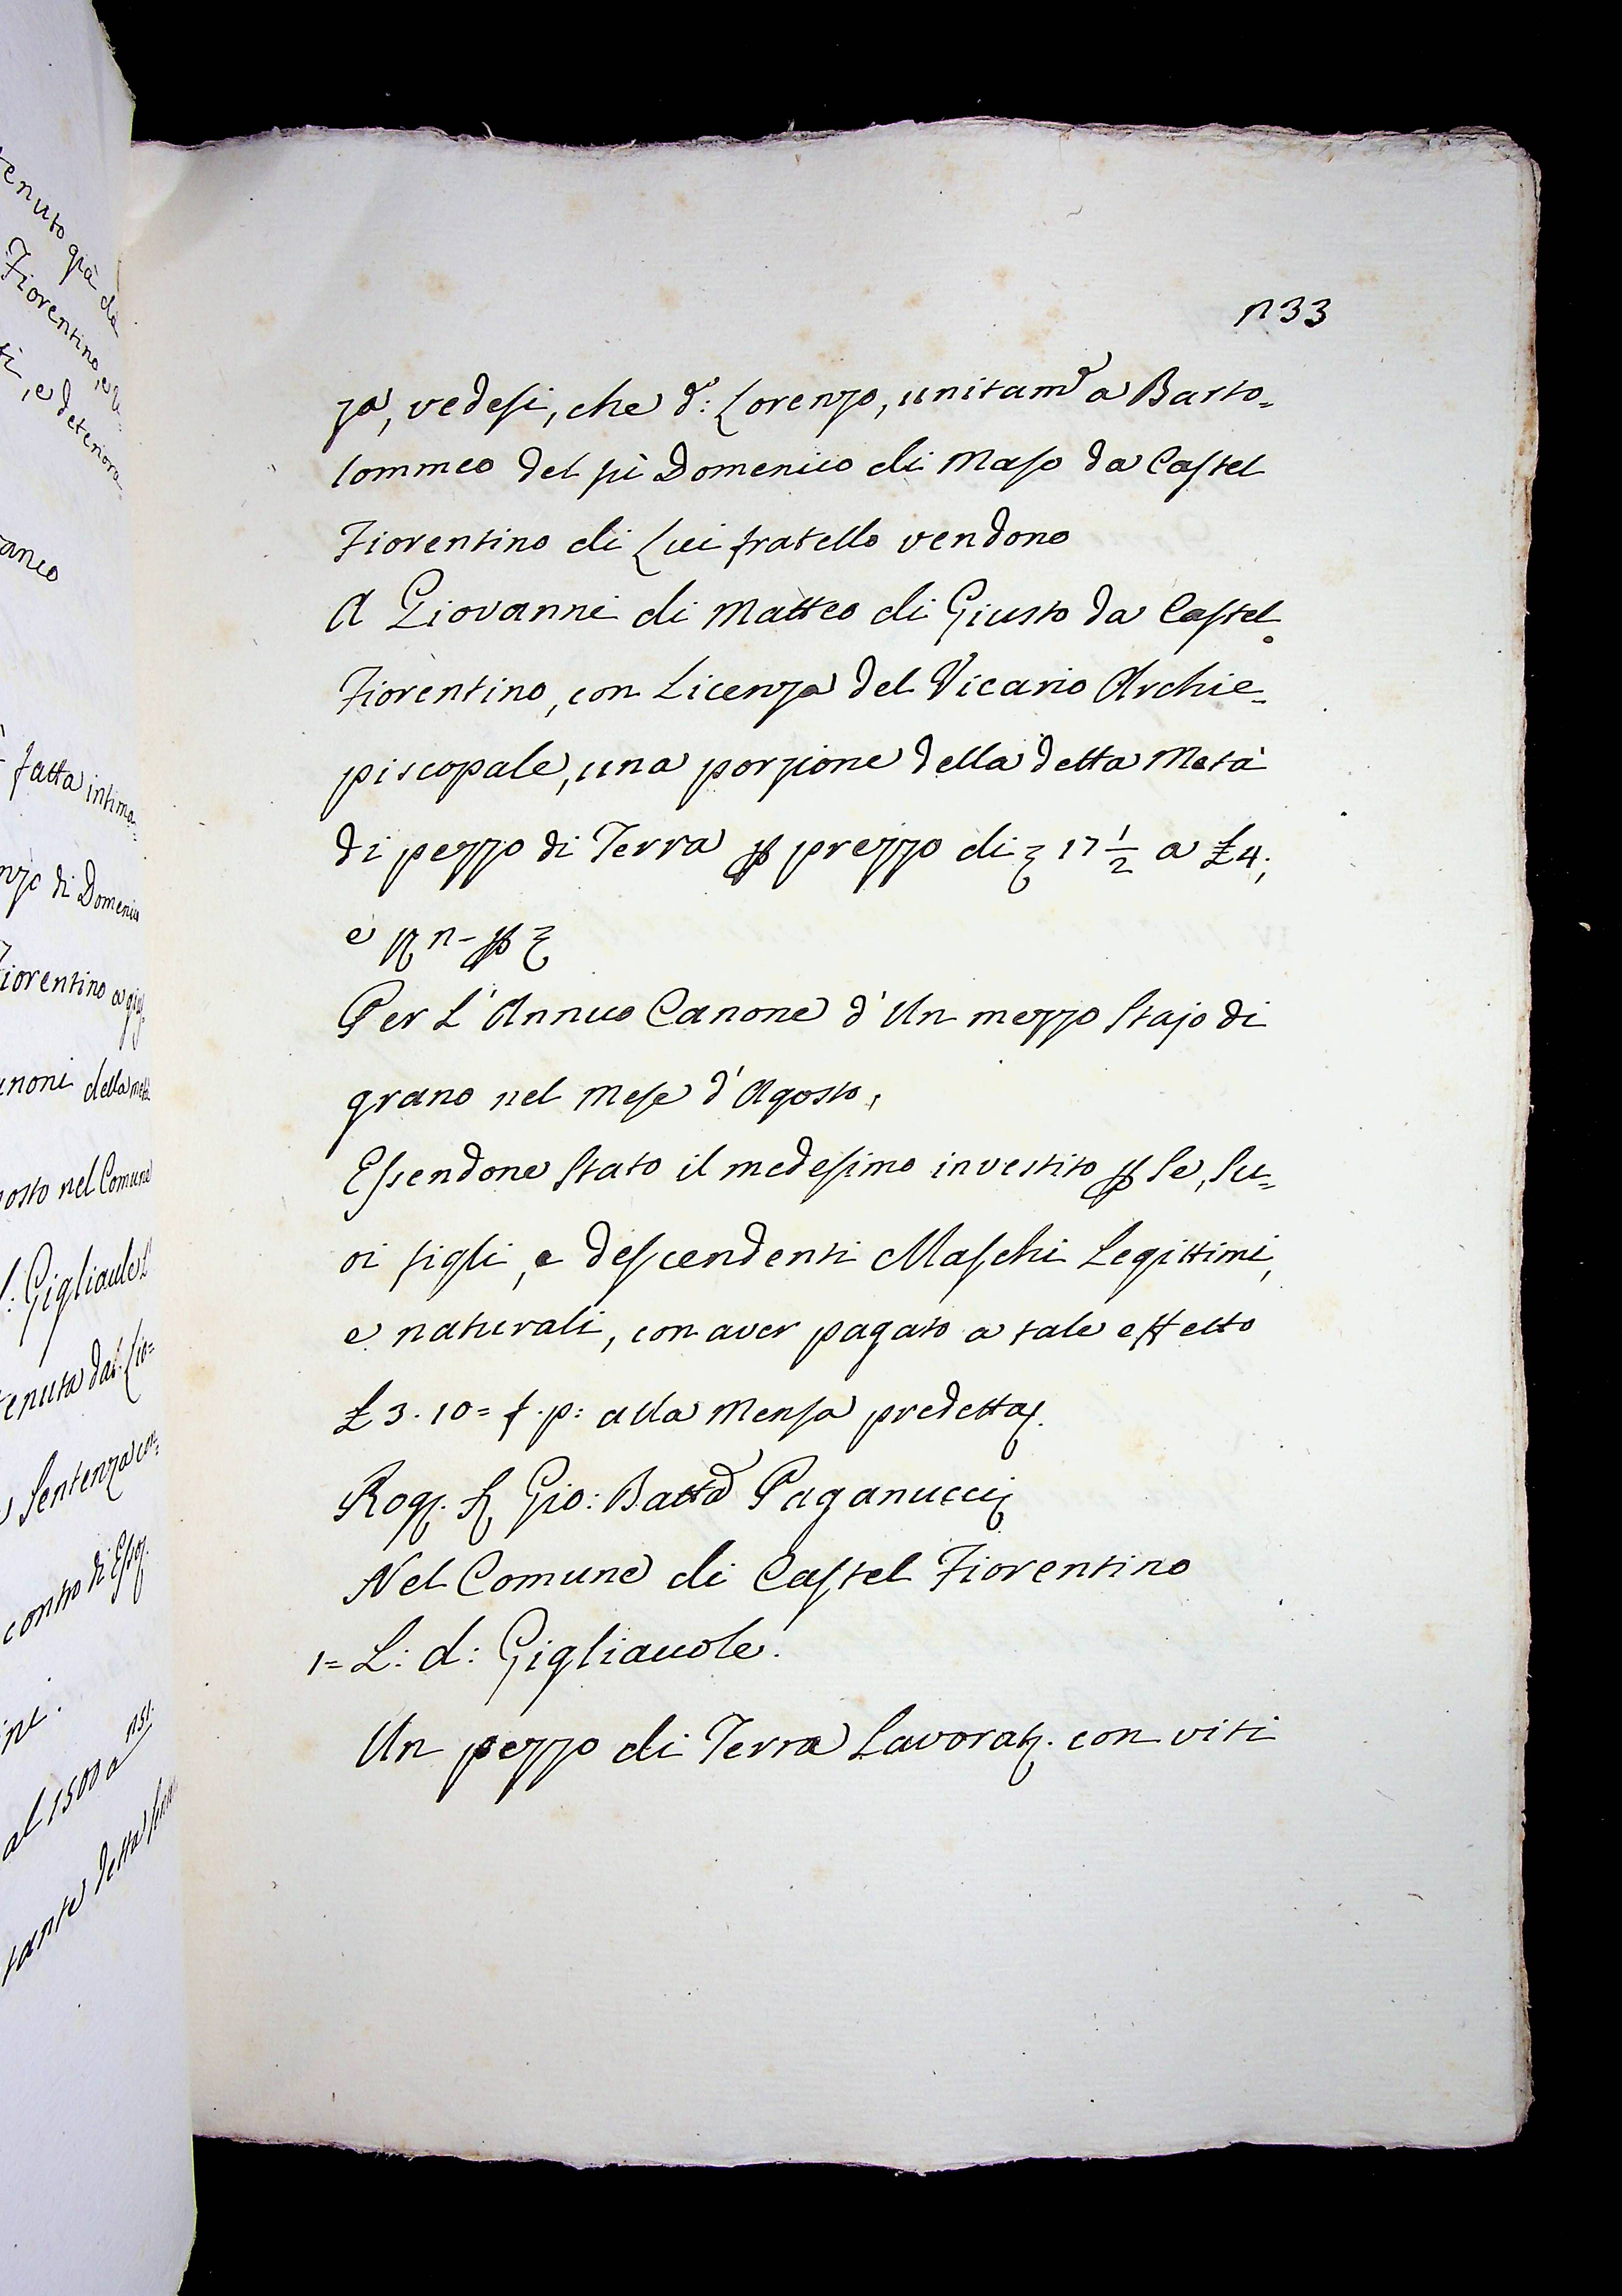 n 33
za, vedesi, che d.º: Lorenzo, unitam.e a Barto=
lommeo del fù Domenico di Maso da Castel
Fiorentino di Lui fratello vendono
A Giovanni di Matteo di Giusto da Castel
Fiorentino, con Licenza del Vicario Archie=
piscopale, una porzione della detta Metà
di pezzo di Terra p prezzo di 17 1/2 a £4;
e
Per L'Annuo Canone d'Un mezzo Stajo di
grano nel Mese d'Agosto,
Essendone Stato il medesimo investito p Se, Su=
oi figli, e descendenti Maschi Legittimi,
e naturali, con aver pagato a tale effetto
£ 3. 10= f. p: alla Mensa predetta.
Rog. S Gio: Batta Paganucci
Nel Comune di Castel Fiorentino
1= L: d: Gigliauole.
Un pezzo di Terra Lavorat. con viti
tenuto già da
Fiorentino, e
ti, e deteriora=
aneo
fatta intima=
nzo di Domenico
Fiorentino a
anoni della metà
posto nel Comune
: Gigliaule
tenuta dal
Sentenza
contro di Esso.
ni.
al 1500 a
tante detta